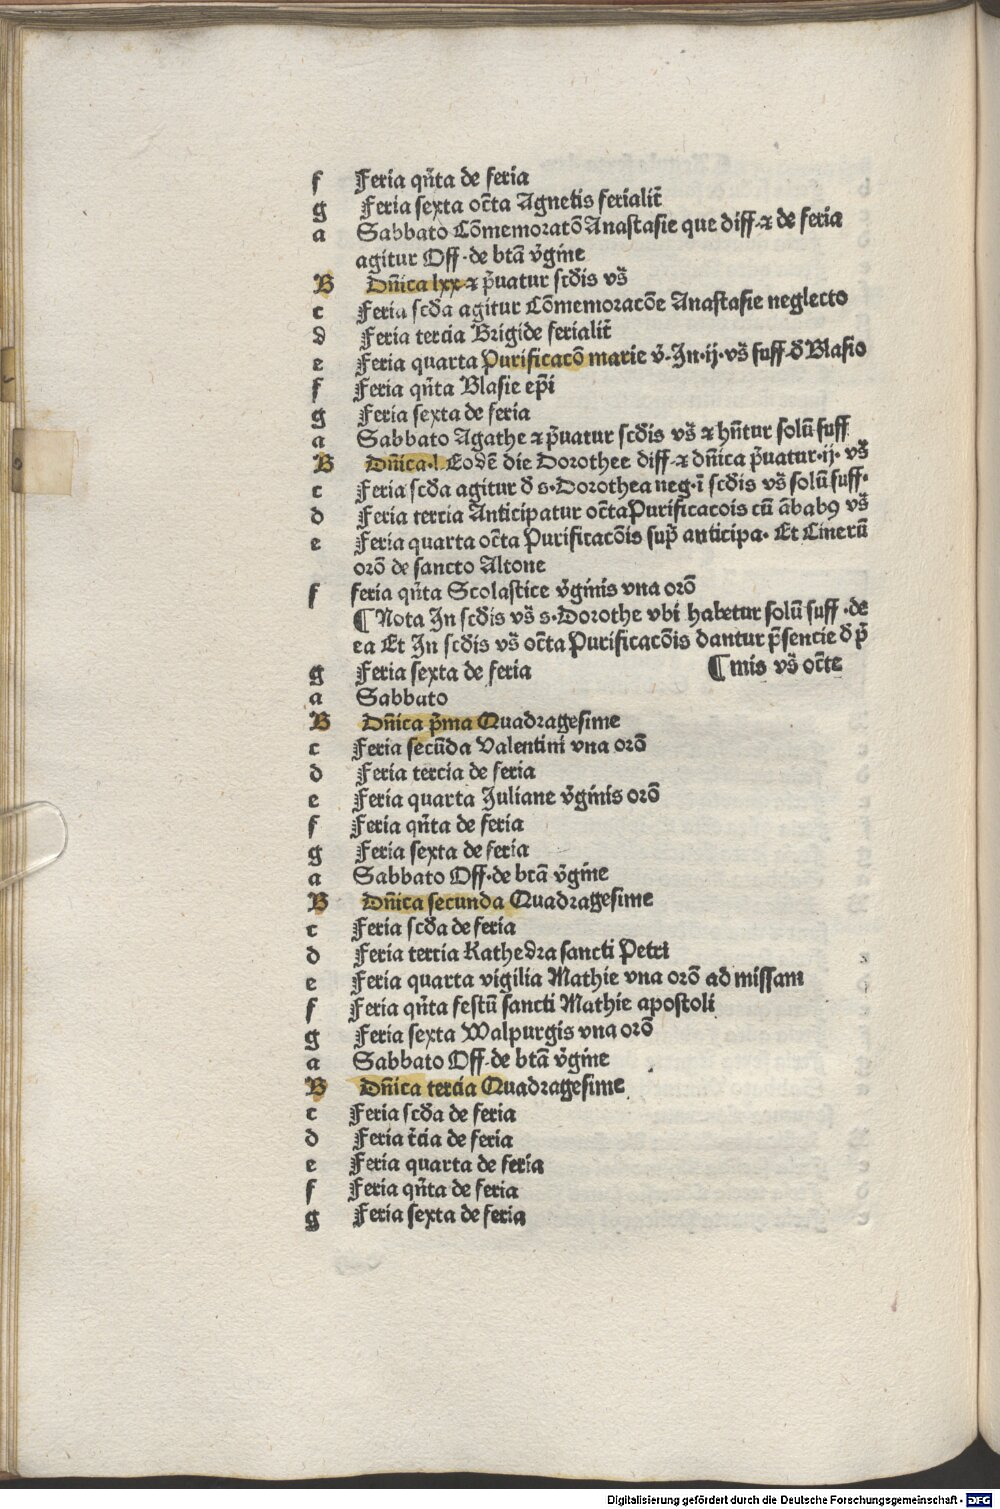 f Feria qn̄ta de feria
g Feria sexta oct̄a Agnetis ferialit̄
a Sabbato Cōmemoratō Anastasie que diff· ⁊ de feria
agitur Off· de btā v̄gīne
B Dn̄ica lxx ⁊ p̄uatur scd̄is vs̄
c Feria scd̄a agitur Cōmemoracōe Anastasie neglecto
d Feria tercia Brigide ferialit̄
e Feria quarta Purificacō marie v̄· In·ij·vs̄ suff·d̄ Blasio
f Feria qn̄ta Blasie ep̄i
g Feria sexta de feria
a Sabbato Agathe ⁊ p̄uatur scd̄is vs̄ ⁊ hn̄tur solū suff
B Dn̄ica·l· Eodē die Dorothee diff· ⁊ dn̄ica p̄uatur·ij· vs̄
c Feria scd̄a agitur d̄ s·Dorothea neg·ī scd̄is vs̄ solū suff·
d Feria tercia Anticipatur oct̄a Purificacois cū ābabꝯ vs̄
e Feria quarta oct̄a Purificacōis sup̄ anticipa· Et Cinerū
orō de sancto Altone
f feria qn̄ta Scolastice v̄gīnis vna orō
¶ Nota In scd̄is vs̄ s·Dorothe vbi habetur solū suff·de
ea Et In scd̄is vs̄ oct̄a Purificacōis dantur p̄sencie d̄ p̄
g Feria sexta de feria ¶ mis vs̄ oct̄e
a Sabbato
B Dn̄ica p̄ma Quadragesime
c Feria secūda Valentini vna orō
d Feria tercia de feria
e Feria quarta Juliane v̄gīnis orō
f Feria qn̄ta de feria
g Feria sexta de feria
a Sabbato Off·de btā v̄gīne
B Dn̄ica secunda Quadragesime
c Feria scd̄a de feria
d Feria tercia Kathedra sancti Petri
e Feria quarta vigilia Mathie vna orō ad missam
f Feria qn̄ta festū sancti Mathie apostoli
g Feria sexta Walpurgis vna orō
a Sabbato Off·de btā v̄gīne
B Dn̄ica tercia Quadragesime
c Feria scd̄a de feria
d Feria t̄cia de feria
e Feria quarta de feria
f Feria qn̄ta de feria
g Feria sexta de feria
Digitalisierung gefördert durch die Deutsche Forschungsgemeinschaft - DFG